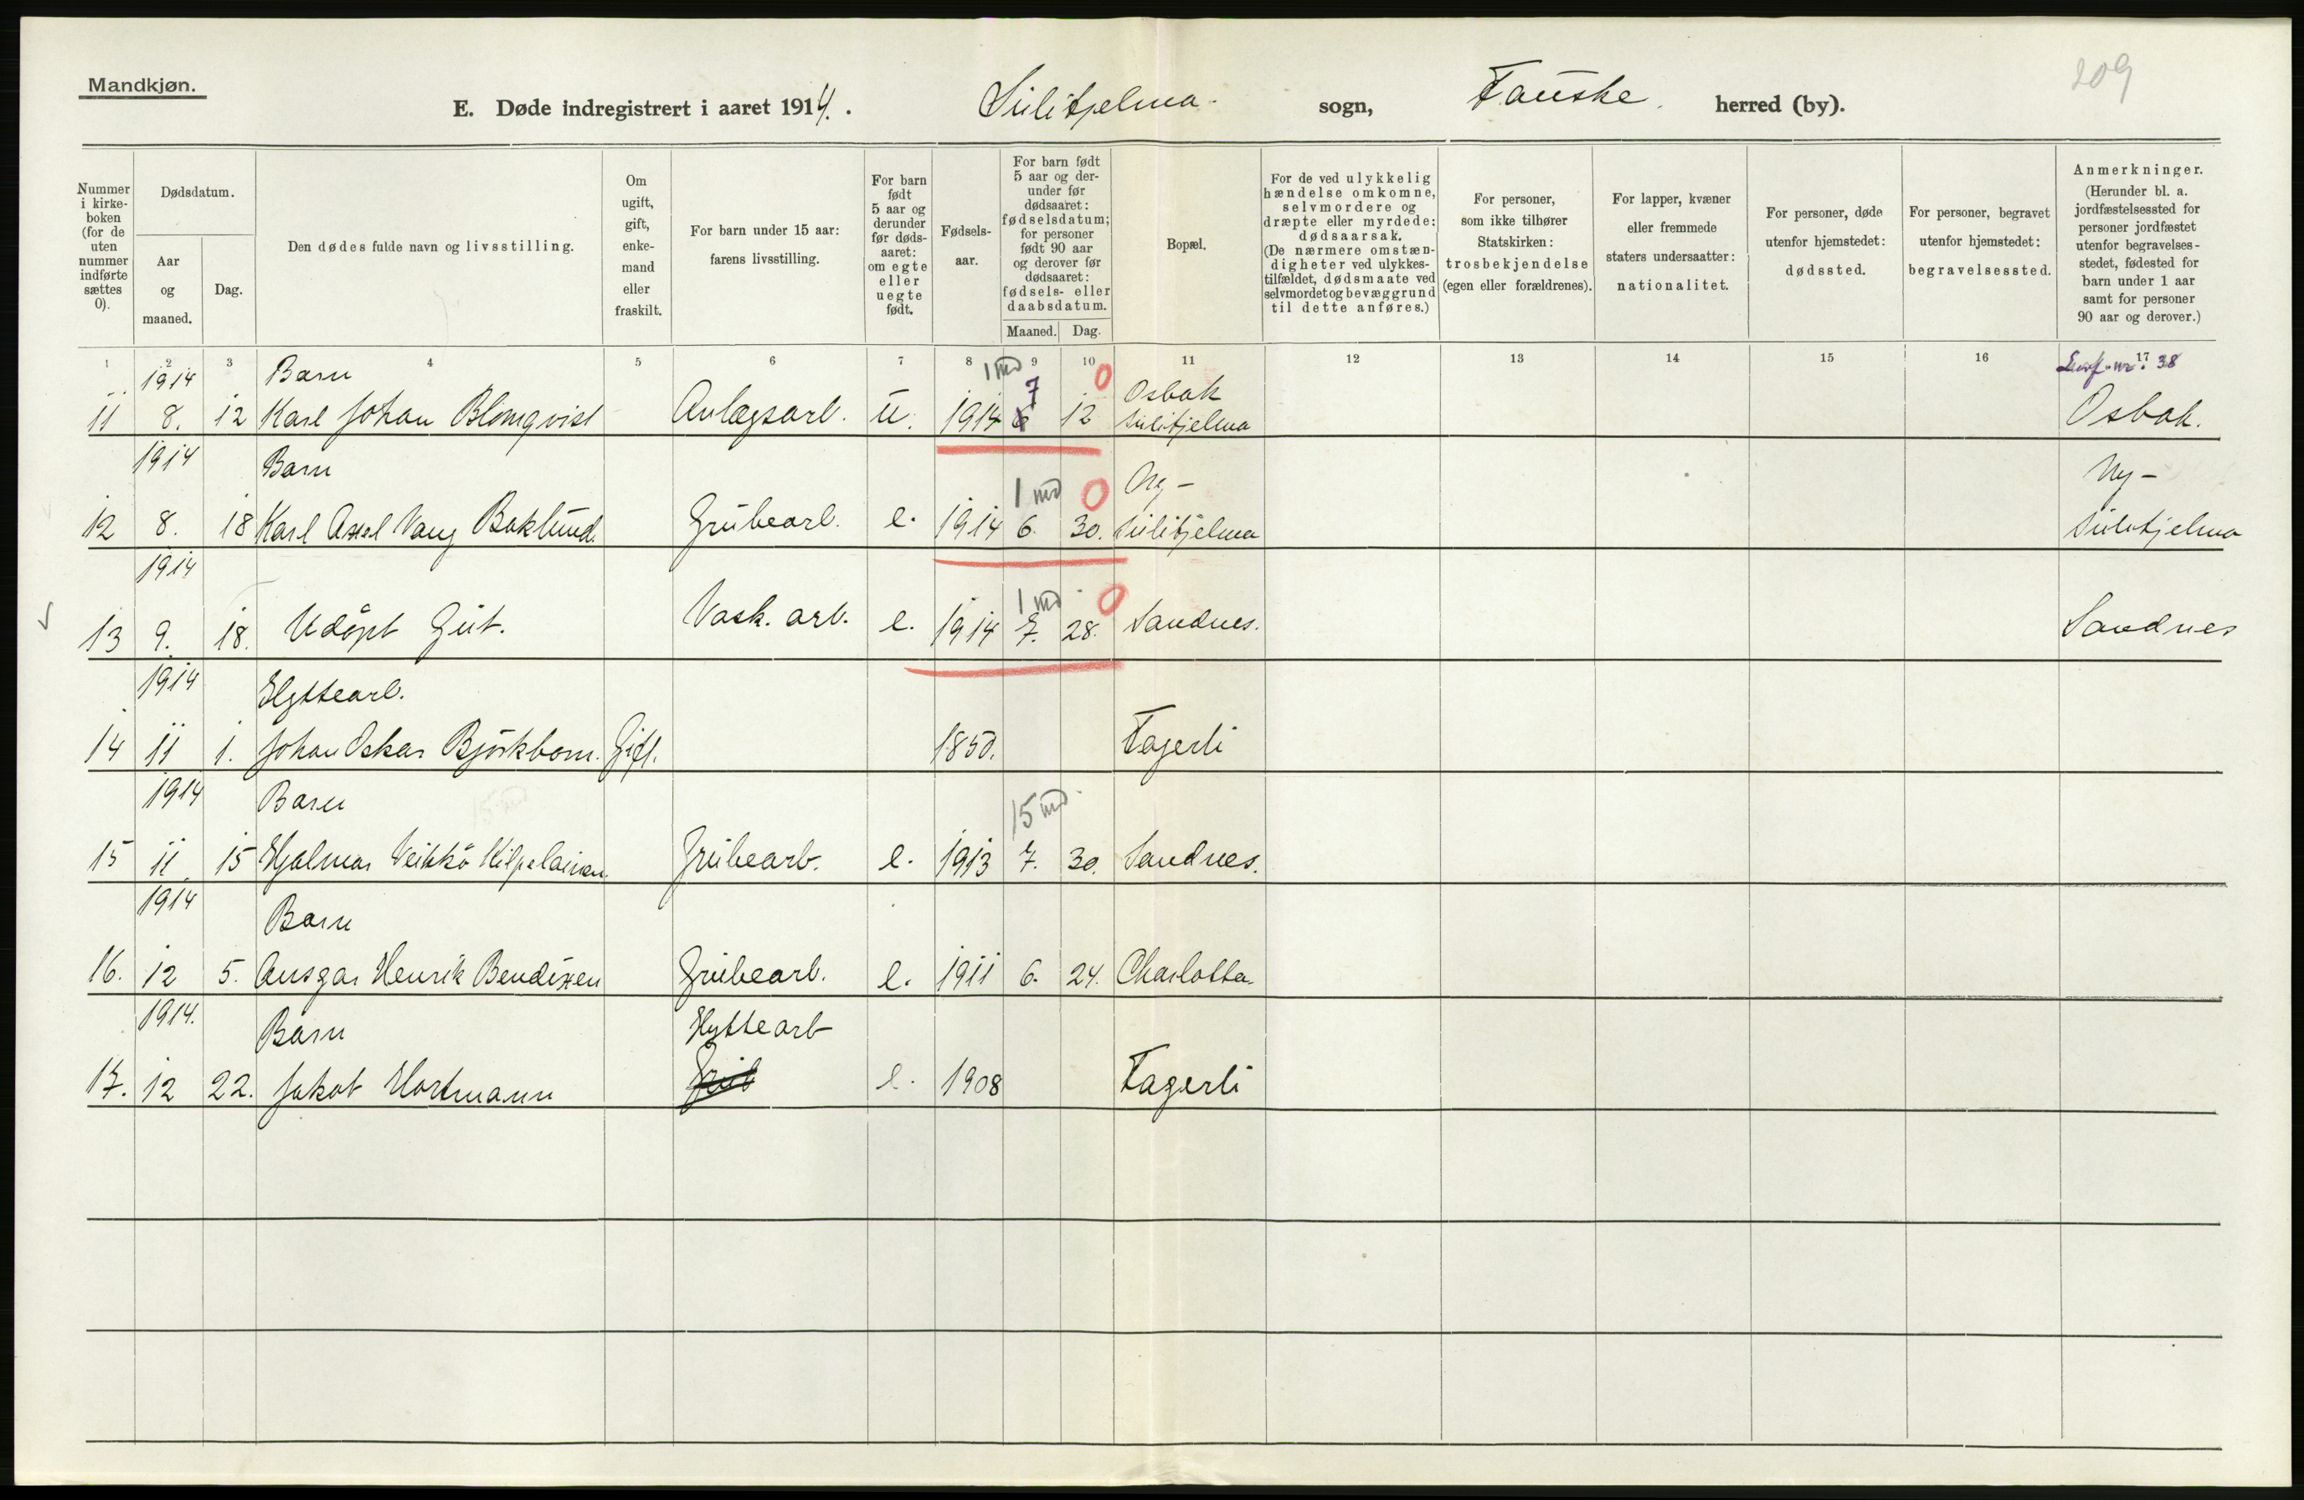 Mandkjøn.
209
E. Døde indregistrert i aaret 1914. Sulitjelma. sogn, Fauske. herred (by).
Nummer i kirkeboken (for de uten nummer indførte sættes 0).
Dødsdatum.
Aar og maaned.
Dag.
Den dødes fulde navn og livsstilling.
Om ugift, gift, enkemand eller fraskilt.
For barn under 15 aar: farens livsstilling.
For barn født 5 aar og derunder før dødsaaret: om egte eller uegte født.
Fødselsaar.
For barn født 5 aar og derunder før dødsaaret: fødselsdatum; for personer født 90 aar og derover før dødsaaret: fødsels- eller daabsdatum.
Maaned.
Dag.
Bopæl.
For de ved ulykkelig hændelse omkomne, selvmordere og dræpte eller myrdede: dødsaarsak. (De nærmere omstændigheter ved ulykkestilfældet, dødsmaate ved selvmordet og bevæggrund til dette anføres.)
For personer, som ikke tilhører Statskirken: trosbekjendelse (egen eller forældrenes).
For lapper, kvæner eller fremmede staters undersaatter: nationalitet.
For personer, døde utenfor hjemstedet: dødssted.
For personer, begravet utenfor hjemstedet: begravelsessted.
Anmerkninger. (Herunder bl. a. jordfæstelsessted for personer jordfæstet utenfor begravelsesstedet, fødested for barn under 1 aar samt for personer 90 aar og derover.)
1 2 3 4 5 6 7 8 9 10 11 12 13 14 15 16 17
1914 Barn 1 md 7 0 Osbak 38
11 8. 12 Karl Johan Blomqvist Anlægsarb. u. 1914 6 12 Sulitjelma Osbak.
1914 Barn 1 md 0 Ny- Ny-
12 8. 18 Karl Axel Vang Baklund. Grubearb. e. 1914 6. 30. Sulitjelma Sulitjelma
1914 1 md 0
13 9. 18. Udøpt Gut. Vask. arb. e. 1914 7. 28. Sandnes. Sandnes
1914 Hyttearb.
14 11 1. Johan Oskar Björkbom. Gift. 1850. Fagerli
1914 Barn 15 md
15 11 15 Hjalmar Veikkö Hilpelainen. Grubearb. e. 1913 7. 30. Sandnes.
1914 Barn
16. 12 5. Ansgar Henrik Bendixen Grubearb. e. 1911 6. 24. Charlotta.
1914. Barn Hyttearb
17. 12 22. Jakob Hartmann Grub e. 1908 Fagerli